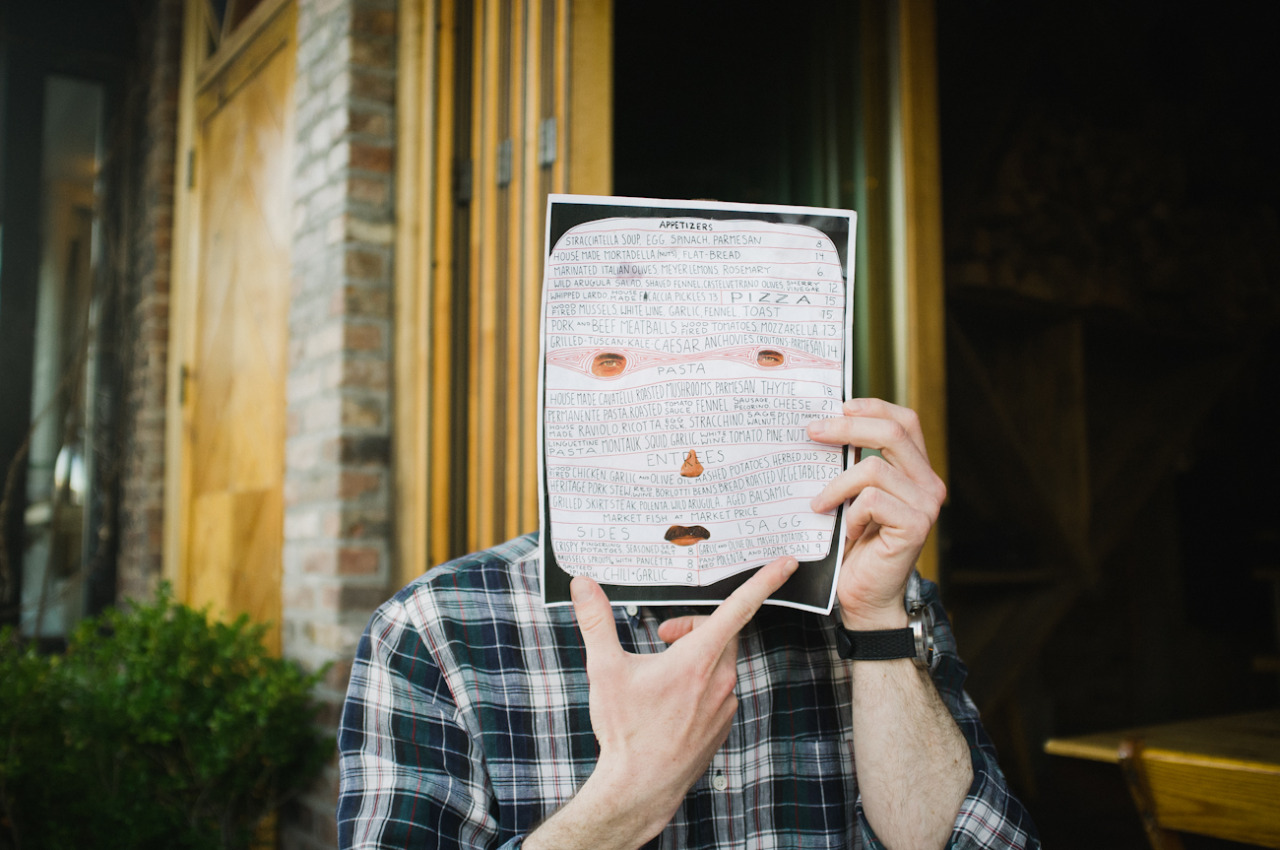 APPETIZERS
STRACCIATELLA SOUP, EGG, SPINACH, PARMESAN 8
HOUSE MADE MORTADELLA FLAT-BREAD 14
MARINATED ITALIAN OLIVES, MEYER LEMONS, ROSEMARY 6
WILD ARUGULA SALAD, SHAVED FENNEL, CASTELVETRANO OLIVES, SHERRY VINEGAR 12
WHIPPED LARDO, HOUSE MADE FOCACCIA, PICKLES 13 PIZZA 15
MUSSELS, WHITE WINE, GARLIC, FENNEL TOAST 15
PORK AND BEEF MEATBALLS, WOOD FIRED TOMATOES, MOZZARELLA 13
GRILLED-TUSCAN-KALE-CAESAR ANCHOVIES, CROUTONS, PARMESAN 14
PASTA
HOUSE MADE CAVATELLI, ROASTED MUSHROOMS, PARMESAN, THYME 18
PERMANENTE PASTA, ROASTED TOMATO SAUCE, FENNEL SAUSAGE, PECORINO CHEESE 21
HOUSE MADE RAVIOLO, RICOTTA, EGG YOLK, STRACCHINO, SAGE WALNUT PESTO
LINGUETTINE PASTA MONTAUK SQUID, GARLIC, WHITE WINE, TOMATO, PINE NUT
ENTREES
CHICKEN, GARLIC AND OLIVE OIL MASHED POTATOES, HERBED JUS 22
HERITAGE PORK STEW, BORLOTTI BEANS, BREAD, ROASTED VEGETABLES 25
GRILLED SKIRT STEAK, POLENTA, WILD ARUGULA, AGED BALSAMIC
MARKET FISH AT MARKET PRICE
SIDES ISA.GG
CRISPY FINGERLING POTATOES, SEASONED SEA SALT 8 GARLIC AND OLIVE OIL MASHED POTATOES 8
BRUSSELS SPROUTS, WITH PANCETTA 8 POLENTA, AND PARMESAN 9
CHILI+GARLIC 8